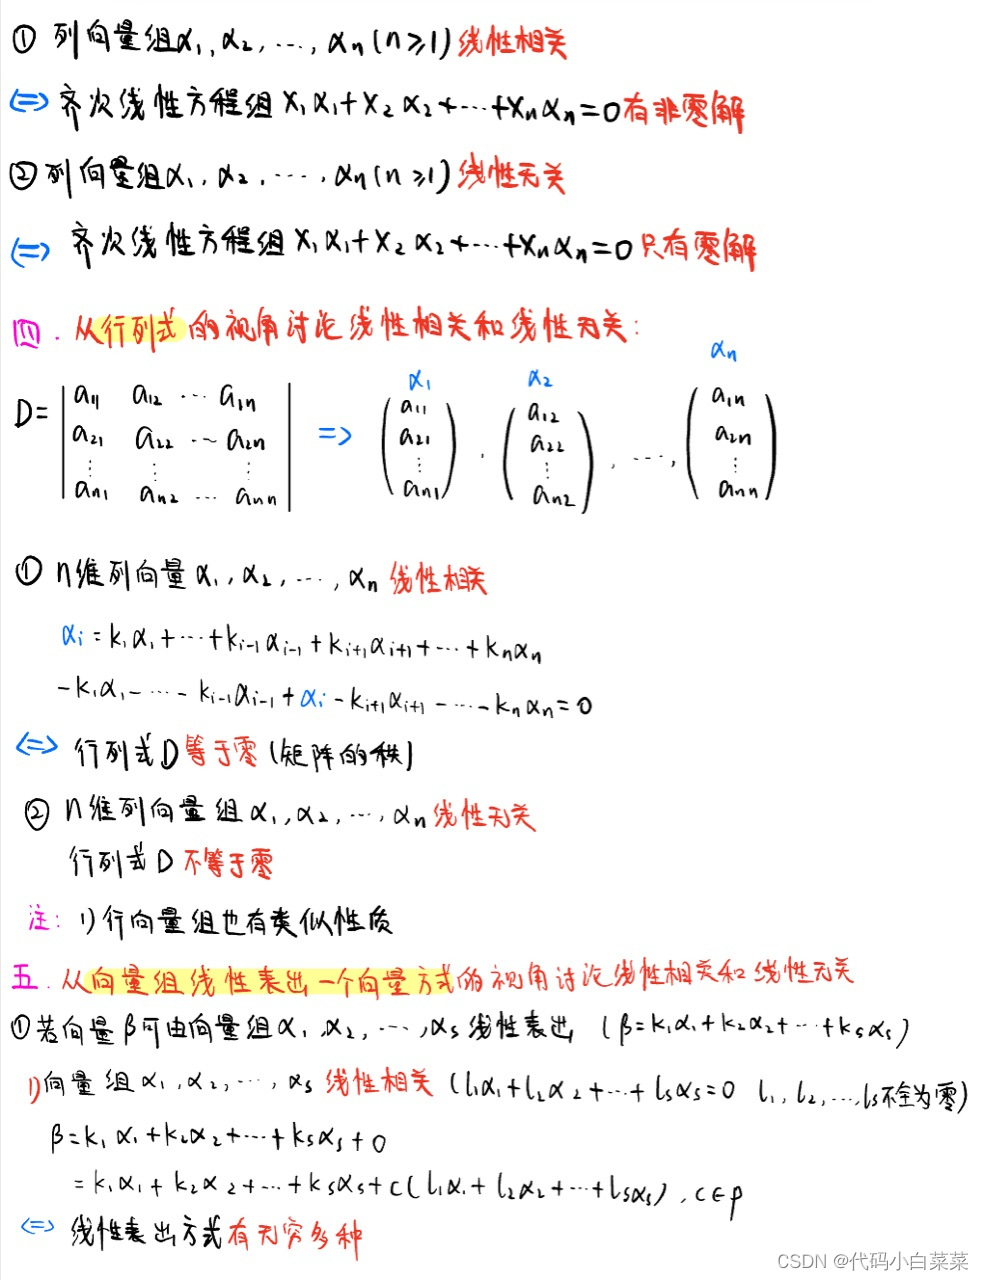 ① 列向量组α₁, α₂, ···, αₙ(n≥1) 线性相关
<=> 齐次线性方程组 x₁α₁+x₂α₂+···+xₙαₙ=0 有非零解
② 列向量组α₁, α₂, ···, αₙ(n≥1) 线性无关
<=> 齐次线性方程组 x₁α₁+x₂α₂+···+xₙαₙ=0 只有零解
四. 从行列式的视角讨论线性相关和线性无关:
α₁ α₂ αₙ
D= | a₁₁ a₁₂ ··· a₁ₙ | => ( a₁₁ ) , ( a₁₂ ) , ···, ( a₁ₙ )
a₂₁ a₂₂ ··· a₂ₙ a₂₁ a₂₂ a₂ₙ
⋮ ⋮ ⋮ ⋮ ⋮ ⋮
aₙ₁ aₙ₂ ··· aₙₙ aₙ₁ aₙ₂ aₙₙ
① n维列向量 α₁, α₂, ···, αₙ 线性相关
αᵢ = k₁α₁+···+kᵢ₋₁αᵢ₋₁+kᵢ₊₁αᵢ₊₁+···+kₙαₙ
-k₁α₁-···-kᵢ₋₁αᵢ₋₁+αᵢ-kᵢ₊₁αᵢ₊₁-···-kₙαₙ=0
<=> 行列式D等于零(矩阵的秩)
② n维列向量组 α₁, α₂, ···, αₙ 线性无关
行列式D 不等于零
注: 1) 行向量组也有类似性质
五. 从向量组线性表出一个向量方式的视角讨论线性相关和线性无关
① 若向量β可由向量组α₁, α₂, ···, αₛ 线性表出 (β=k₁α₁+k₂α₂+···+kₛαₛ)
1)向量组α₁, α₂, ···, αₛ 线性相关 (l₁α₁+l₂α₂+···+lₛαₛ=0 l₁, l₂, ···, lₛ不全为零)
β=k₁α₁+k₂α₂+···+kₛαₛ+0
=k₁α₁+k₂α₂+···+kₛαₛ+c(l₁α₁+l₂α₂+···+lₛαₛ), c∈p
<=> 线性表出方式有无穷多种
CSDN @代码小白菜菜